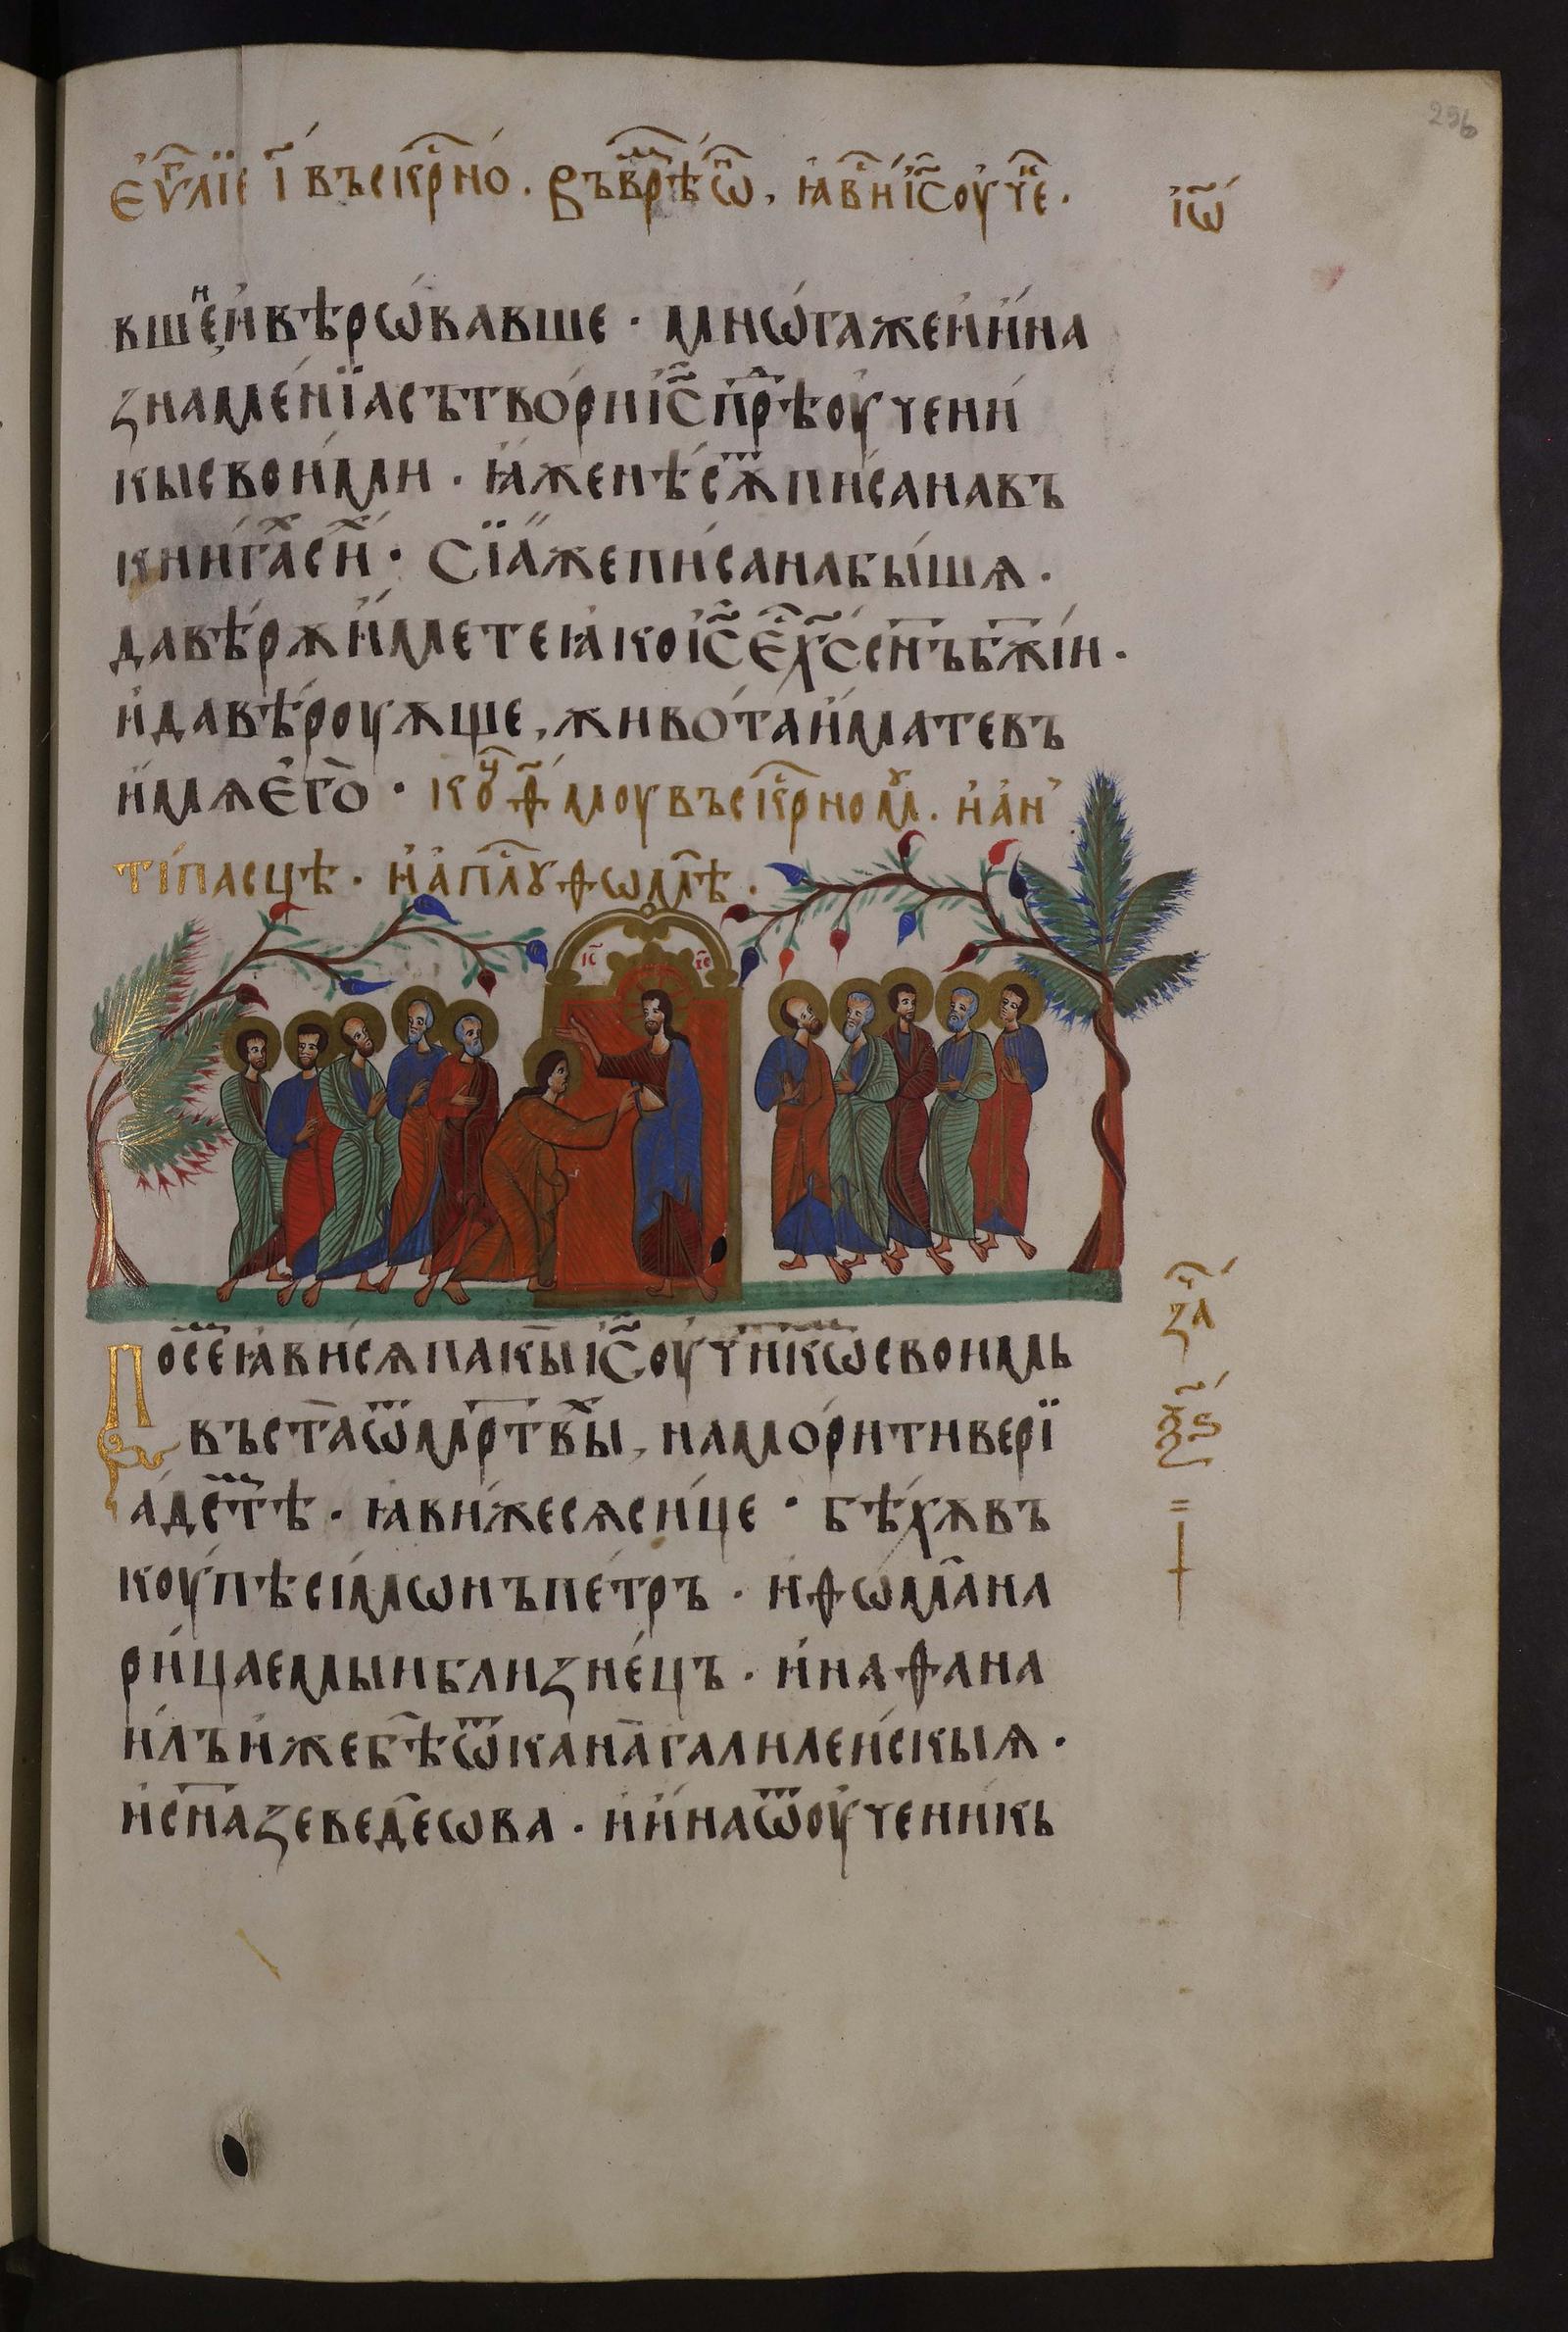 256
еѵⷢ҇лїе і҃ въскрⷭ҇но́. Въ вⷨрѣⷩ҇ѡ҃, ꙗвⷭ҇и і҃с оучⷩ҇е.
іѡ҃
вшеⷩ҇ и҆ вѣрѡ́вавше · мнѡ́га же и҆ и҆́на
знаме́нїа сътво́ри і҃с прⷣѣ оучени
кы свои́ми · ꙗ҆́же не сѫⷮ пи́сана въ
кни́гаⷯ си́ⷯ · Сїа́ же пи́сана бы́шѧ ·
да вѣ́рѫ и҆́мете ꙗ҆ко і҃с еⷭ҇ х҃с сн҃ъ бж҃їи ·
и҆ да вѣ́роуѫще, живо́та и҆мате въ
и҆́мѧ е҆го̀ · коⷰ҇ ѳ҃ моу въскрⷭ҇ноⷨ. и҆ а҆н
ті́пасцѣ · и҆ а҆пⷭ҇лꙋ ѳѡмѣ̀ ·
іс҃ хс҃
По се́ⷨ ꙗ҆ви́сѧ пакы̀ і҃с оучⷩ҇икѡⷨ свои́мь
въста̀ ѡⷮ мрⷮ҇твыⷯ, на мо́ри тивері
а́дсⷮтѣ · ꙗ҆ви́ же сѧ си́це · бѣ́хѫ въ
коу́пѣ сі́мѡнъ пе́тръ · и҆ ѳѡма̀ на
ри́цаемыи близне́цъ · и҆ наѳана
и́лъ и҆же бѣ̀ ѡⷮ кана̀ галиле́искыѧ ·
и҆ сн҃а зеведе́ѡва · и҆ и҆́на ѡⷮ оучени́кь
за҃ⷱ
ѯ҃ѕ